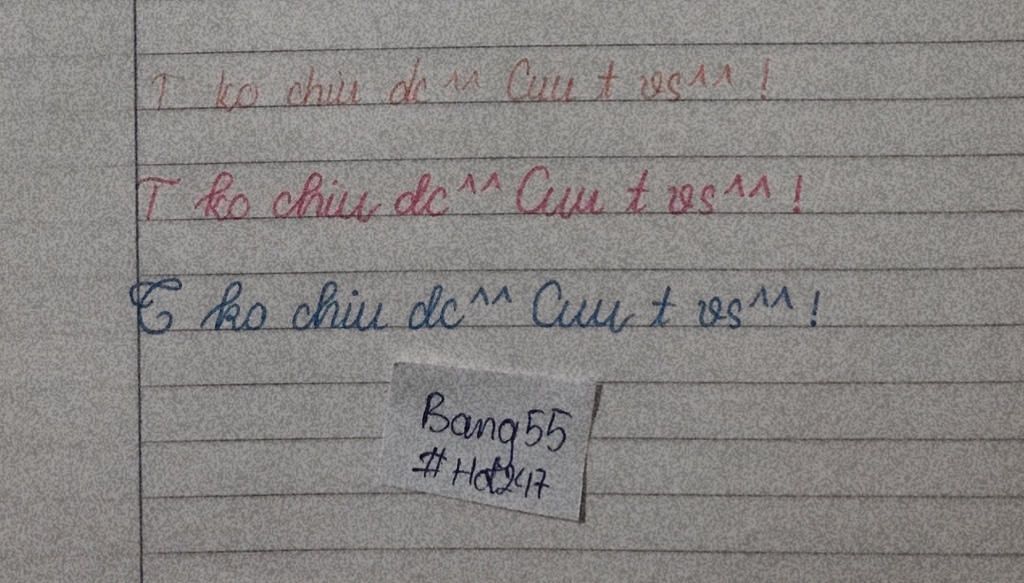 T ko chiu dc^^ Cuu t vs^^ !
T ko chiu dc^^ Cuu t vs^^ !
T ko chiu dc^^ Cuu t vs^^ !
Bang55
#Hot247